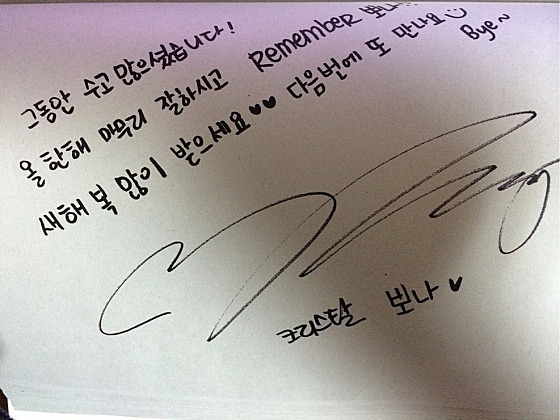 그동안 수고 많으셨습니다!
올 한해 마무리 잘하시고 Remember 뽀나!!
새해 복 많이 받으세요♥♥ 다음번에 또 만나요 Bye~
크리스탈 뽀나 ♥